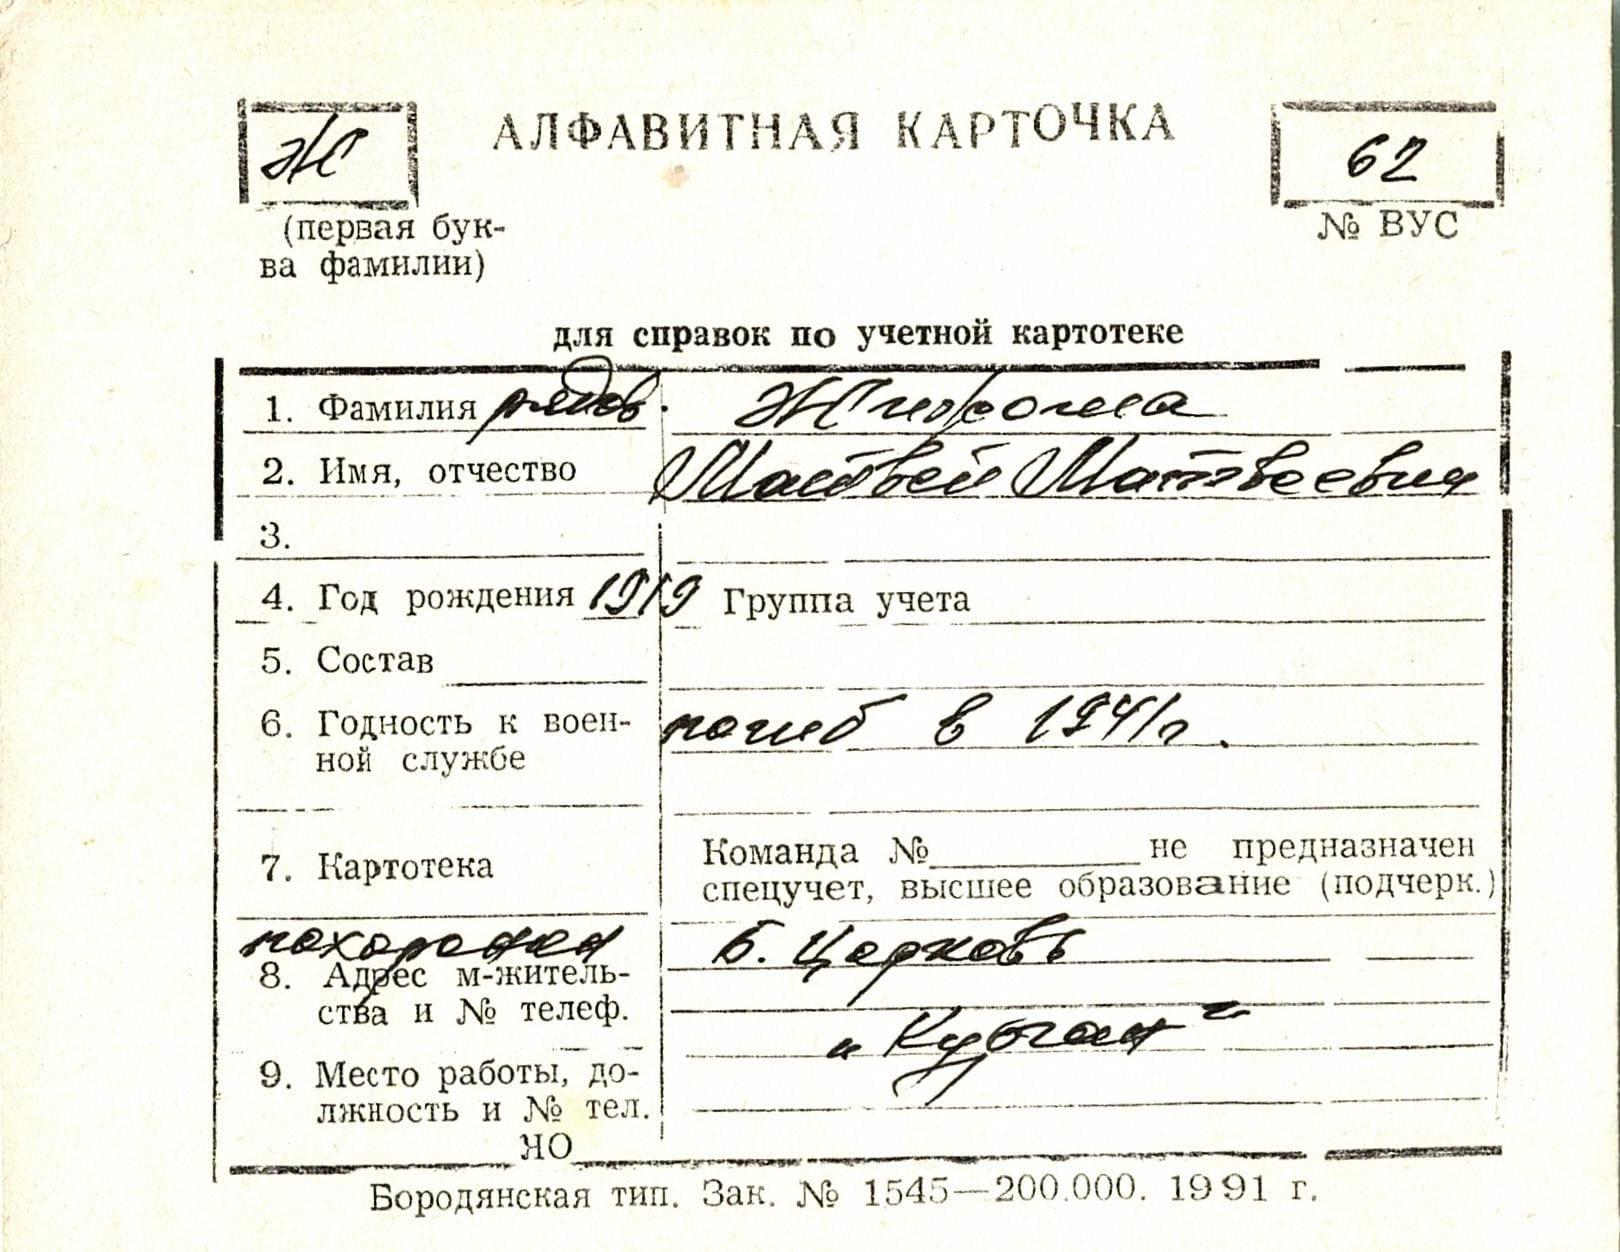 Ж АЛФАВИТНАЯ КАРТОЧКА 62
(первая бук-
ва фамилии)
№ ВУС
для справок по учетной картотеке
1. Фамилия рядов.
2. Имя, отчество Матвей Матвеевич
3.
4. Год рождения 1919 Группа учета
5. Состав
6. Годность к воен- погиб в 1941 г.
ной службе
7. Картотека
Команда № не предназначен
спецучет, высшее образование (подчерк.)
похоронен Б. Церковь
8. Адрес м-житель-
ства и № телеф.
„Курган“
9. Место работы, до-
лжность и № тел.
НО
Бородянская тип. Зак. № 1545—200.000. 1991 г.